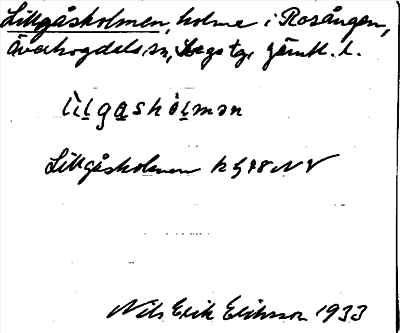 Lillgåsholmen, holme i Rosången,
Överhogdals sn, Hogs tg, Jämtl. l.
lìlgashòlmən
Lillgåsholmen k
Nils Erik Eriksson 1933